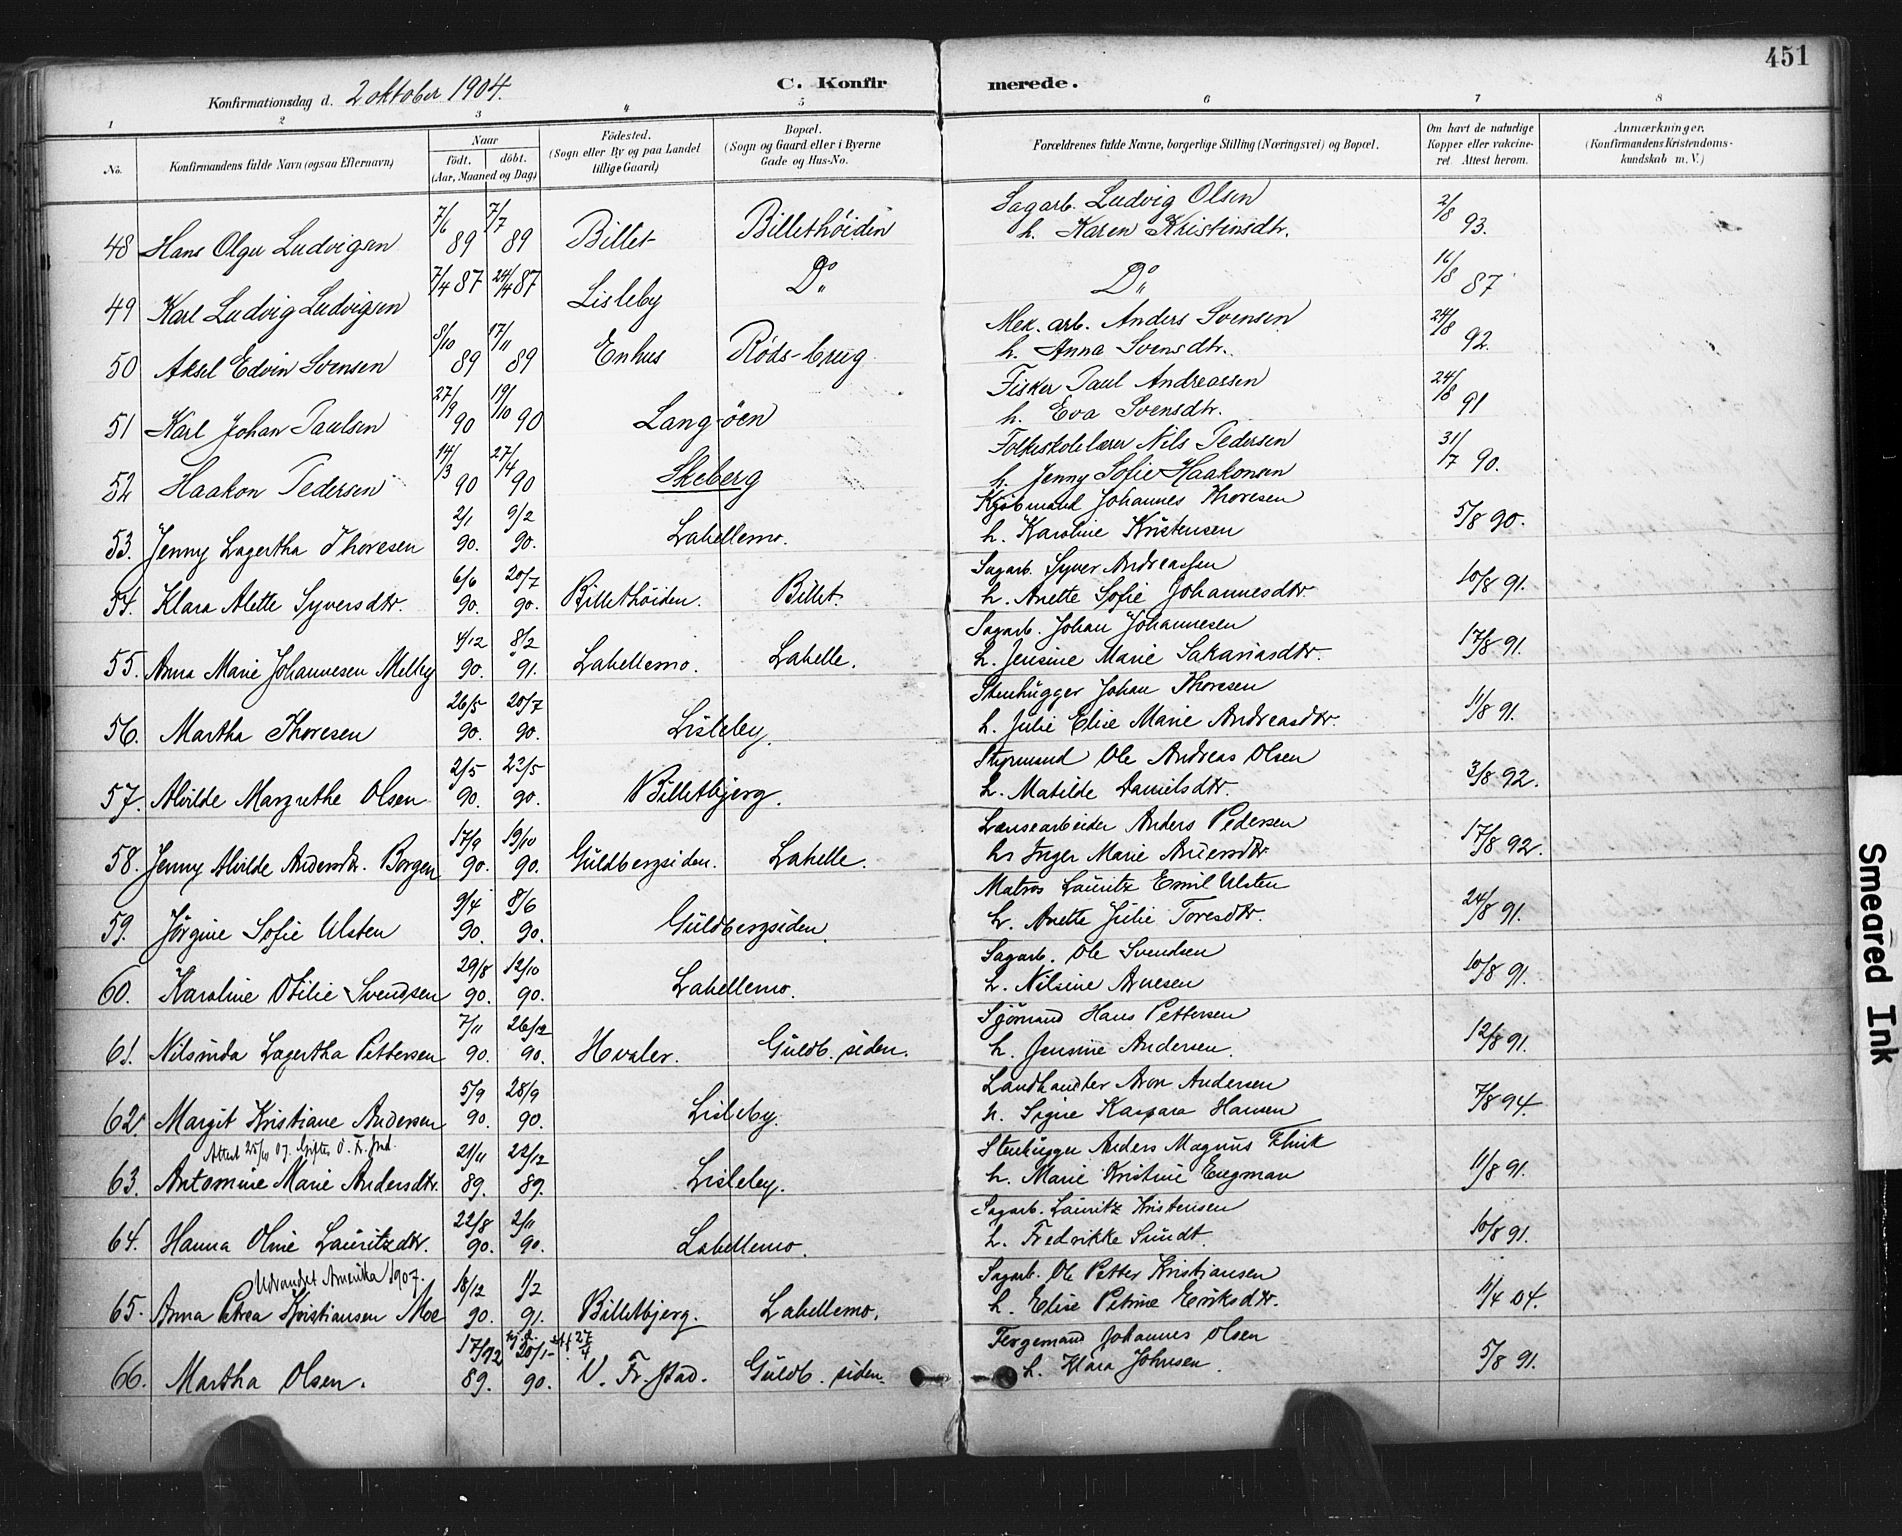 451
Konfirmationsdag d. 2 oktober 1904.
C. Konfirmerede.
1 2 3 4 5 6 7 8
No. Konfirmandens fulde Navn (ogsaa Efternavn) Naar født. døbt. (Aar, Maaned og Dag) Fødested. (Sogn eller By og paa Landet tillige Gaard) Bopæl. (Sogn og Gaard eller i Byerne Gade og Hus-No. Forældrenes fulde Navne, borgerlige Stilling (Næringsvei) og Bopæl. Om havt de naturlige Kopper eller vakcineret Attest herom. Anmærkninger. (Konfirmandens Kristendomskundskab m. V.)
48 Hans Olger Ludvigsen 7/6 89 7/7 89 Billet Billethöiden Sagarb. Ludvig Olsen
h. Karen Kristinsdtr. 2/8 93.
49 Karl Ludvig Ludvigsen 7/4 87 24/4 87 Lisleby Do Do 16/8 87
50 Aksel Edvin Svensen 8/10 89 17/11 89 Enhus Røds-brug Mek. arb. Anders Svensen
h. Anna Svensdtr. 24/8 92.
51 Karl Johan Paulsen 27/9 90 19/10 90 Lang-öen Fisker Paul Andreassen
h. Eva Svensdtr. 24/8 91
52 Haakon Pedersen 14/3 90 27/4 90 Skeberg Folkeskolelærer Nils Pedersen
h. Jenny Sofie Haakonsen 31/7 90.
53. Jenny Lagertha Thoresen 2/1 90. 9/2 90. Lahellemo. Kjöbmand Johannes Thoresen
h. Karoline Kristensen 5/8 90.
54. Klara Alette Syversdtr. 6/6 90. 20/7 90. Billethöiden. Billet. Sagarb. Syver Andreassen
h. Anette Sofie Johannesdtr. 10/8 91.
55. Anna Marie Johannesen Melby 4/12 90. 8/2 91. Lahellemo. Lahelle. Sagarb. Johan Johannesen
h. Jensine Marie Sakariasdtr. 17/8 91.
56. Martha Thoresen 26/5 90. 20/7 90. Lisleby. Stenhugger Johan Thoresen
h. Julie Elise Marie Andreasdtr. 11/8 91.
57. Alvilde Margrethe Olsen 2/5 90. 23/5 90. Billetbjerg. Styrmand Ole Andreas Olsen
h. Matilde Danielsdtr. 3/8 92.
58. Jenny Alvilde Andersdtr. Borgen 17/9 90. 19/10 90. Guldbergsiden. Lahelle. Lensearbeider Anders Pedersen
h. Inger Marie Andersdtr. 17/8 92.
59. Jörgine Sofie Ulsten 9/4 90. 8/6 90. Guldbergsiden. Matros Lauritz Emil Ulsten
h. Anette Julie Toresdtr. 24/8 91.
60. Karoline Otilie Svendsen 29/8 90. 12/10 90. Lahellemo. Sagarb. Ole Svendsen
h. Nilsine Arnesen 10/8 91.
61. Nilsinda Lagertha Pettersen 7/11 90. 26/12 90. Hvaler. Guldb. siden. Sjömand Hans Pettersen
h. Jensine Andersen. 12/8 91.
62. Margit Kristiane Andersen 5/9 90. 28/9 90. Lisleby. Landhandler Aron Andersen
h. Signe Kaspara Hansen 7/8 94.
Attest 07. Giftes Ö. Fr.stad.
63. Antomine Marie Andersdtr. 21/11 89. 22/12 89. Lisleby. Stenhugger Anders Magnus Flink
h. Marie Kristine Engman 11/8 91.
64. Hanna Oline Lauritzdtr. 22/8 90. 2/11 90. Lahellemo. Sagarb. Lauritz Kristensen
h. Fredrikke Sundt. 10/8 91.
Udvandret Amerika 1907.
65. Anna Petrea Kristiansen Moe 18/12 90. 1/2 91. Billetbjerg. Lahellemo. Sagarb. Ole Petter Kristiansen
h. Elise Petrine Eriksdtr. 11/4 04.
66. Martha Olsen. 17/12 89. 20/1 90. V. Fr.stad. Guldb. siden. Fergemand Johannes Olsen
h. Klara Johnsen. 5/8 91.
Smeared Ink